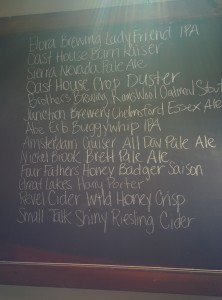 Flora Brewing Lady Friend IPA
Oast House Barn Raiser
Sierra Nevada Pale Ale
Oast House Crop Duster
Brothers Brewing Rams Wool Oatmeal Stout
Junction Brewery Chelmsford Essex Ale
Abe Erb Buggywhip IPA
Amsterdam Cruiser All Day Pale Ale
Nickel Brook Brett Pale Ale
Four Fathers Honey Badger Saison
Great Lakes Harry Porter
Revel Cider Wild Honey Crisp
Small Talk Shiny Riesling Cider